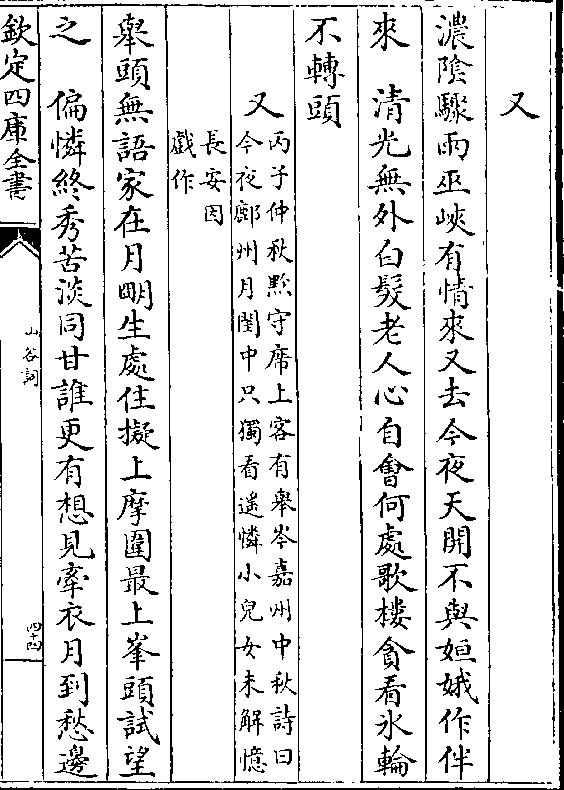 又
濃陰驟雨巫峽有情來又去今夜天開不與姮娥作伴
來　清光無外白髮老人心自會何處歌樓貪看氷輪
不轉頭
又
丙子仲秋黔守席上客有舉岑嘉州中秋詩曰
今夜鄜州月閨中只獨看遥憐小兒女未解憶
長安因
戯作
舉頭無語家在月明生處住擬上摩圍最上峯頭試望
之　偏憐終秀苦淡同甘誰更有想見牽衣月到愁邊
欽定四庫全書
山谷詞
四十四